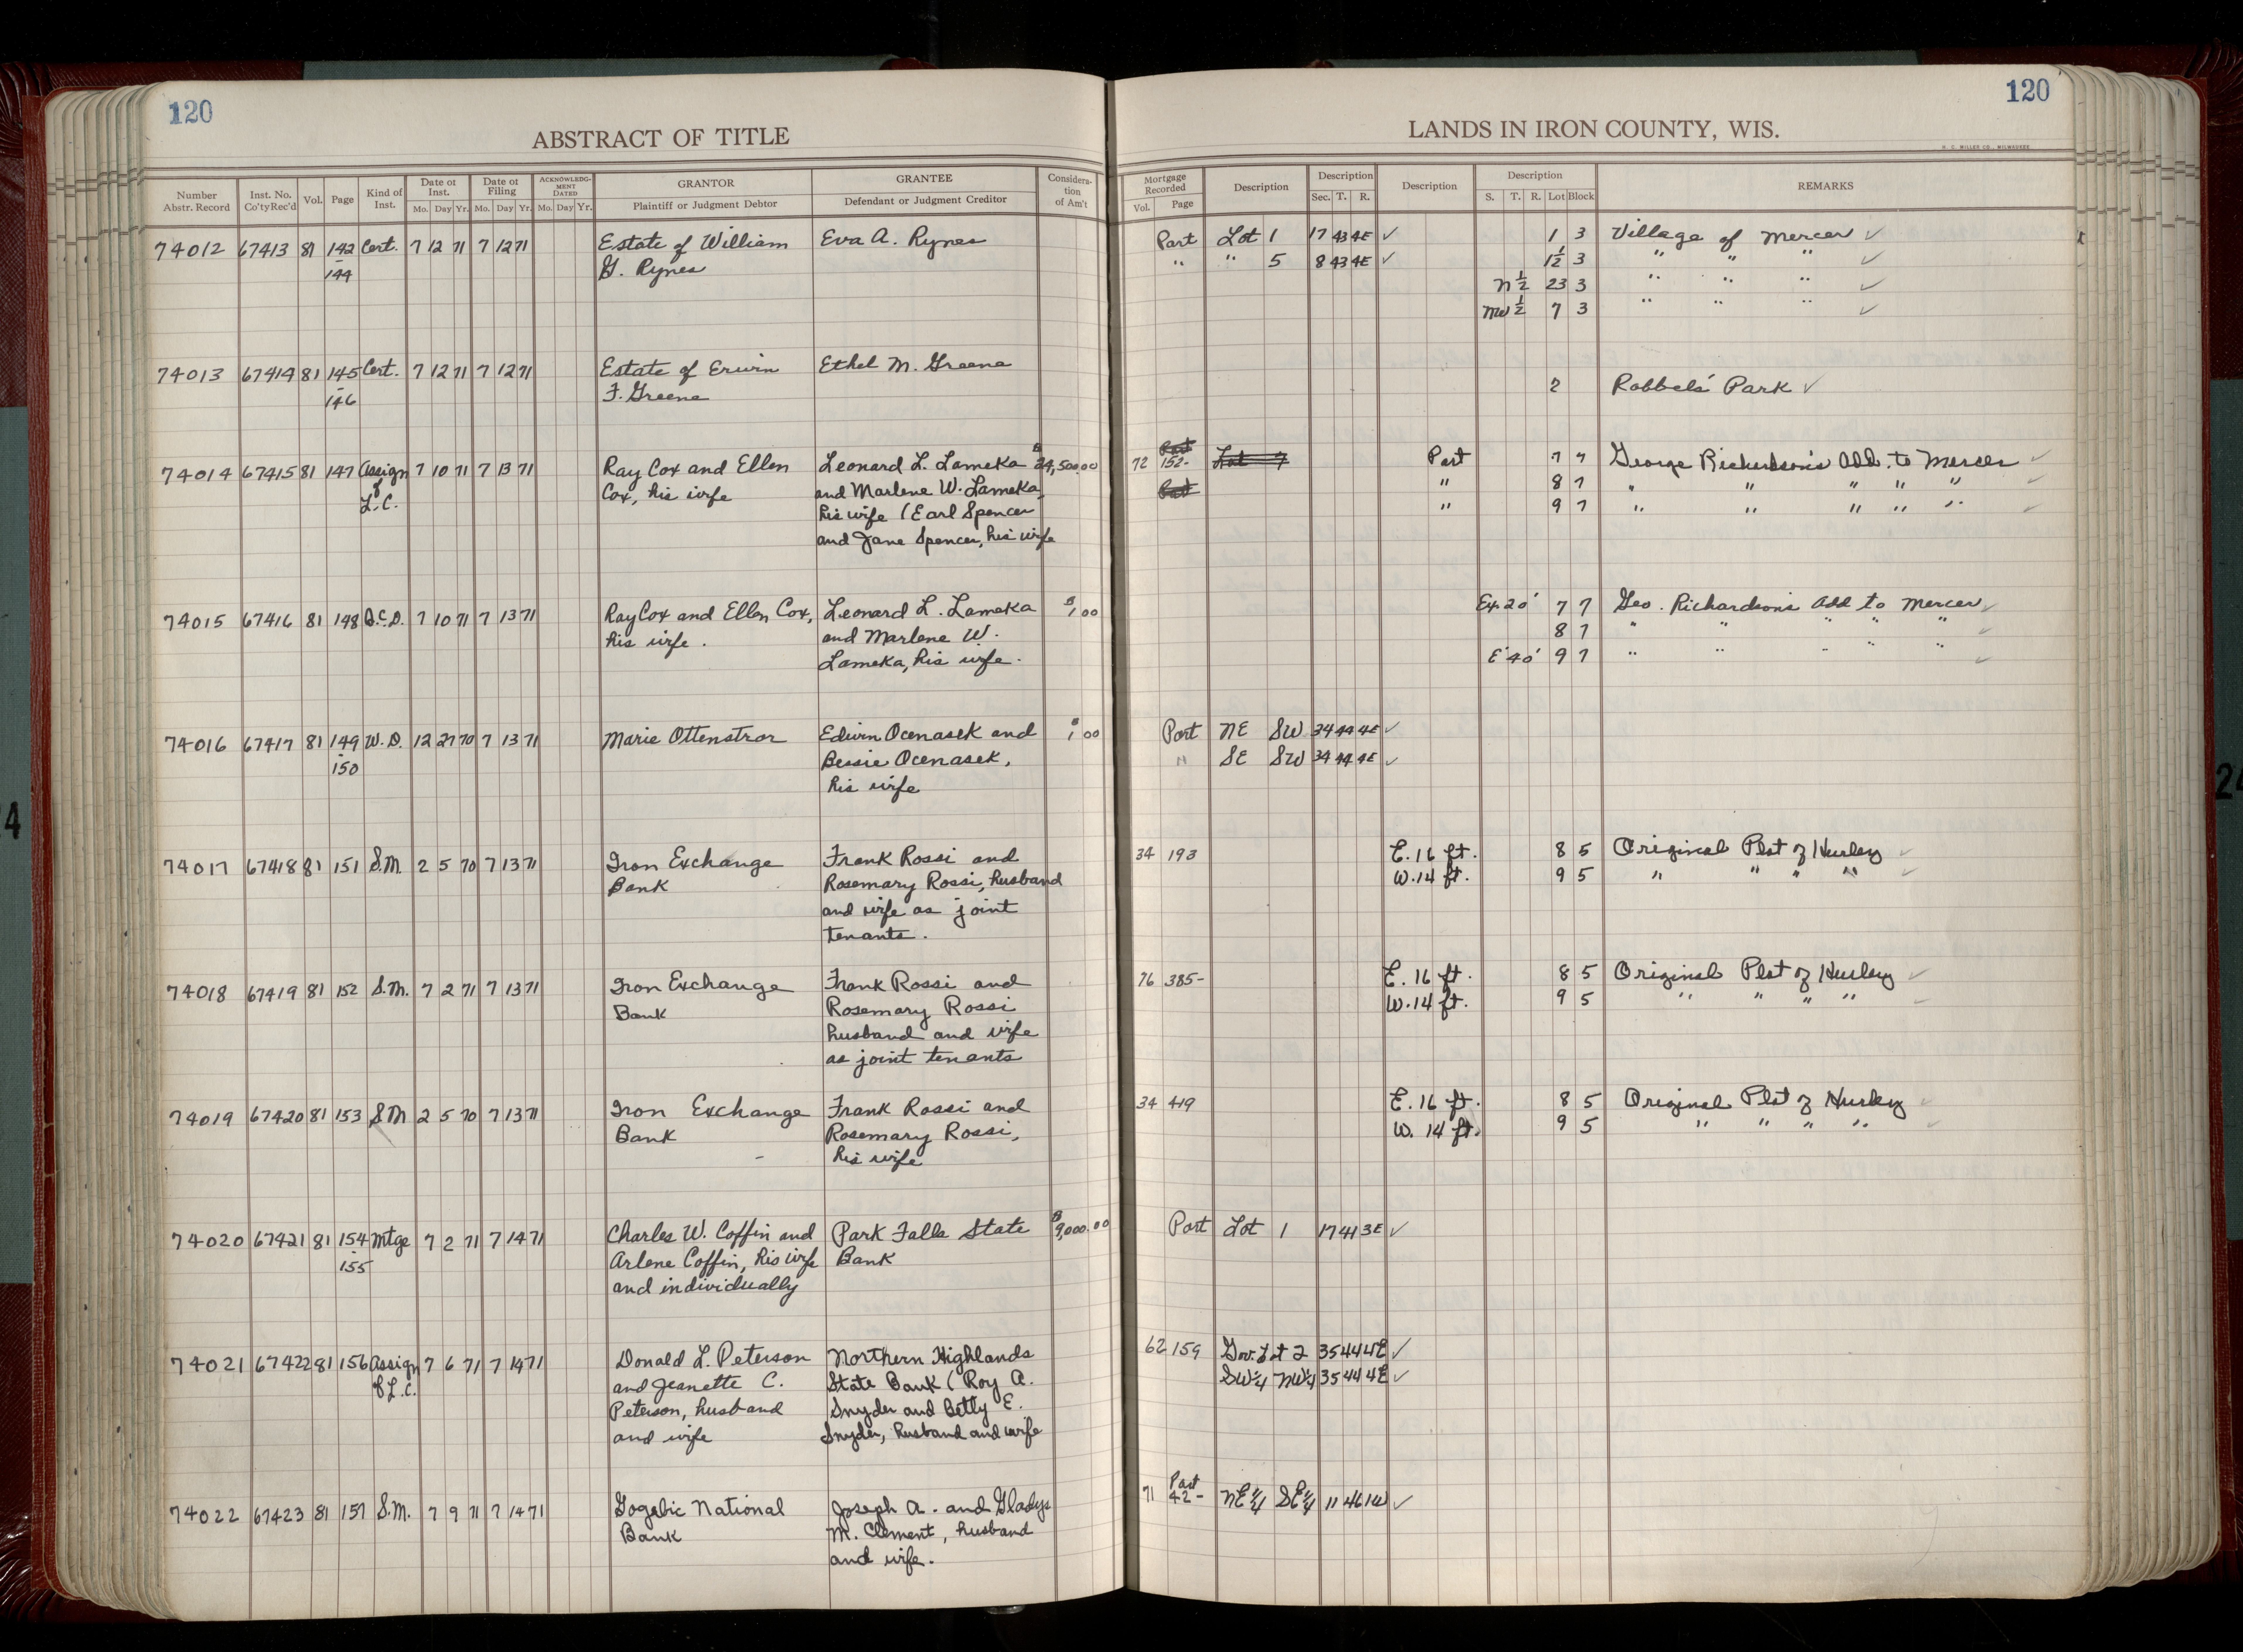 120
120
ABSTRACT OF TITLE
LANDS IN IRON COUNTY, WIS.
H. C. MILLER CO., MILWAUKEE
Number Abstr. Record | Inst. No. Co'ty Rec'd | Vol. | Page | Kind of Inst. | Date of Inst. Mo. Day Yr. | Date of Filing Mo. Day Yr. | ACKNOWLEDGMENT DATED Mo. Day Yr. | GRANTOR Plaintiff or Judgment Debtor | GRANTEE Defendant or Judgment Creditor | Consideration of Am't | Mortgage Recorded Vol. Page | Description | Description Sec. T. R. | Description | Description S. T. R. Lot Block | REMARKS
74012 67413 81 142 Cert. 7 12 71 7 12 71 Estate of William Eva A. Rynes Part Lot 1 17 43 4E ✓ 1 3 Village of Mercer ✓
-144 G. Rynes " " 5 8 43 4E ✓ 1½ 3 " " " ✓
N½ 23 3 " " " ✓
NW½ 7 3 " " " ✓
74013 67414 81 145 Cert. 7 12 71 7 12 71 Estate of Erwin Ethel M. Greene
-146 F. Greene 2 Robbels' Park ✓
74014 67415 81 147 Assign 7 10 71 7 13 71 Ray Cox and Ellen Leonard L. Lameka $24,500.00 72 152- Part 7 7 George Richardson's Add. to Mercer ✓
of Cox, his wife and Marlene W. Lameka, " 8 7 " " " " " ✓
L.C. his wife (Earl Spencer " 9 7 " " " " " ✓
and Jane Spencer, his wife
74015 67416 81 148 Q.C.D. 7 10 71 7 13 71 Ray Cox and Ellen Cox, Leonard L. Lameka $1.00 Ex. 20' 7 7 Geo. Richardson's Add to Mercer ✓
his wife. and Marlene W. 8 7 " " " " " ✓
Lameka, his wife. E 40' 9 7 " " " " " ✓
74016 67417 81 149 W.D. 12 27 70 7 13 71 Marie Ottenstror Edwin Ocenasek and $1.00 Part NE SW 34 44 4E ✓
-150 Bessie Ocenasek, " SE SW 34 44 4E ✓
his wife
74017 67418 81 151 S.M. 2 5 70 7 13 71 Iron Exchange Frank Rossi and 34 193 E. 16 ft. 8 5 Original Plat of Hurley ✓
Bank Rosemary Rossi, husband W. 14 ft. 9 5 " " " " ✓
and wife as joint
tenants.
74018 67419 81 152 S.M. 7 2 71 7 13 71 Iron Exchange Frank Rossi and 76 385- E. 16 ft. 8 5 Original Plat of Hurley ✓
Bank Rosemary Rossi W. 14 ft. 9 5 " " " " ✓
husband and wife
as joint tenants
74019 67420 81 153 S.M 2 5 70 7 13 71 Iron Exchange Frank Rossi and 34 419 E. 16 ft. 8 5 Original Plat of Hurley ✓
Bank Rosemary Rossi, W. 14 ft. 9 5 " " " " ✓
his wife
74020 67421 81 154 Mtge 7 2 71 7 14 71 Charles W. Coffin and Park Falls State $9,000.00 Part Lot 1 17 41 3E ✓
-155 Arlene Coffin, his wife Bank
and individually
74021 67422 81 156 Assign 7 6 71 7 14 71 Donald L. Peterson Northern Highlands 62 159 Gov. Lot 2 35 44 4E ✓
of L.C. and Jeanette C. State Bank (Roy A. SW¼ NW¼ 35 44 4E ✓
Peterson, husband Snyder and Betty E.
and wife Snyder, husband and wife
74022 67423 81 157 S.M. 7 9 71 7 14 71 Gogebic National Joseph A. and Gladys 71 Part 42- NE¼ SE¼ 11 46 1W ✓
Bank M. Clement, husband
and wife.